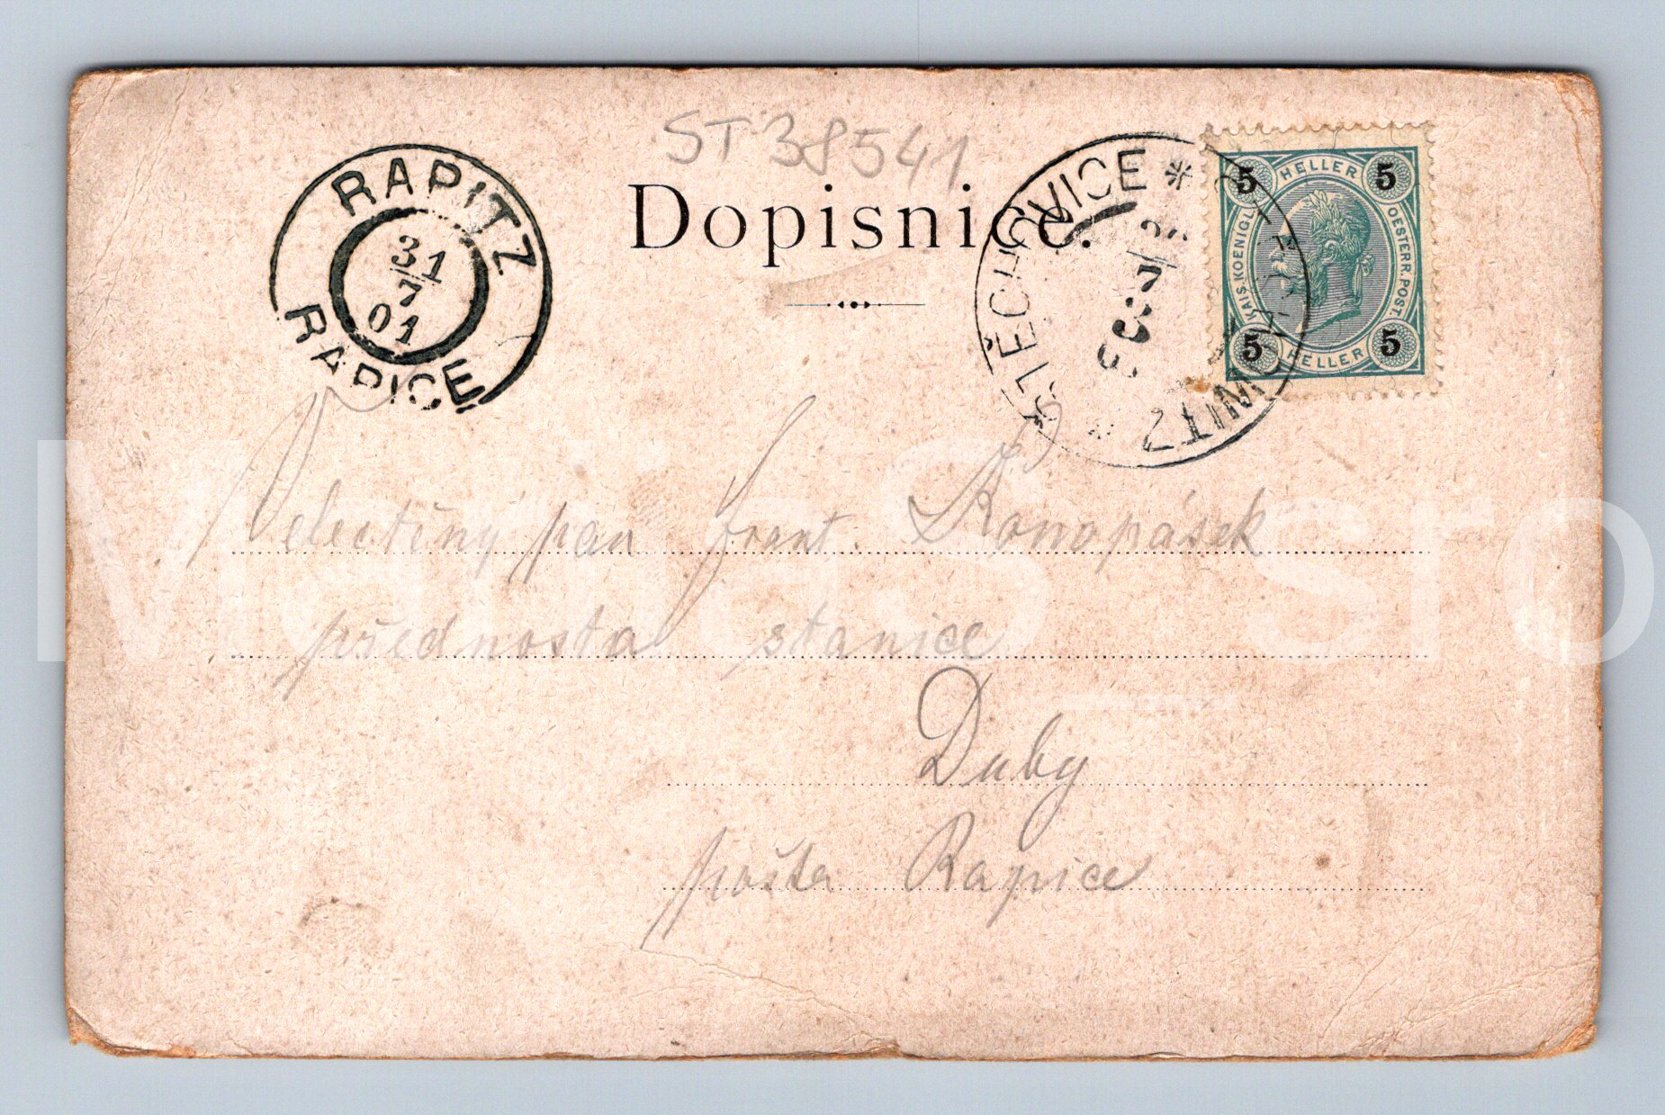 ST 38541
Dopisnice.
RAPITZ
31
7
01
RAPICE
ŠTĚCHOVICE
5 HELLER 5
KAIS. KOENIGL.
OESTERR. POST
5 HELLER 5
Velectěný pan Frant. Konopásek
přednosta stanice
Duby
pošta Rapice